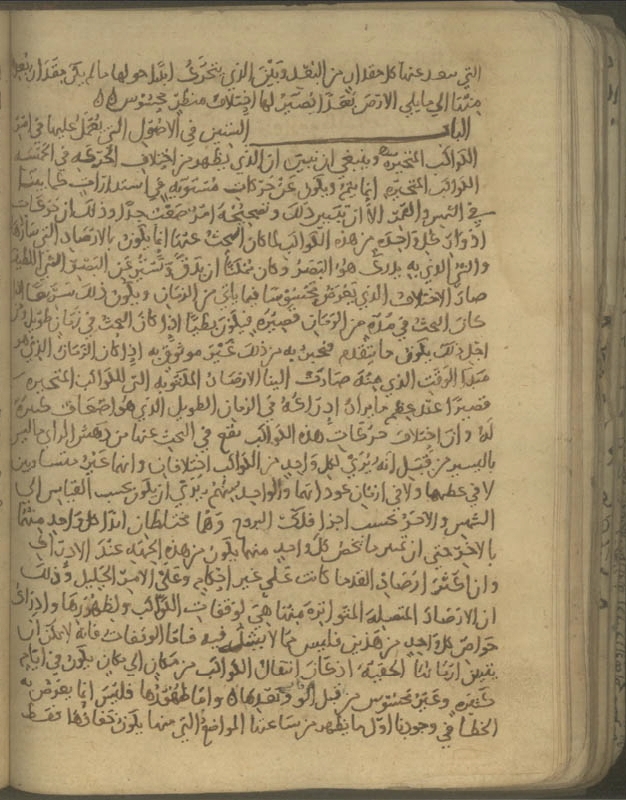 التي بعد عنها كل مقدار من البعد وبين الذي يتحرى ابدا حولها ما لم يكن مقدار بعد
منها الى ما يلي الارض بعدا يصير لها اختلاف منظر محسوس
الباب الثاني في الاصول التي يعمل عليها في امر
الكواكب المتحيرة وينبغي ان نبين ان الذي يظهر من اختلاف الحركة في الخمسة
الكواكب المتحيرة انما يتم ويكون عن حركات مستوية في استدارات كما بينا
في الشمس والقمر الا ان تبيين ذلك وتصحيحه امر صعب جدا وذلك ان حركات
ادوار كل واحد من هذه الكواكب لما كان البحث عنها انما يكون بالارصاد التي
والشي الذي به يدرك هو البصر وكان
صار الاختلاف الذي يعرض محسوسا فيما ياتي من الزمان ويكون ذلك سريعا اذا
كان البحث في مدة من الزمان قصيرة فيكون بطيا اذا كان البحث في زمان طويل ومن
اجل ذلك يكون ما يتقدم فنخبر به من ذلك غير موثوق به اذا كان الزمان الذي هو
مبدا الوقت الذي منه صارت الينا الارصاد المكتوبة التي للكواكب المتحيرة
قصيرا عند عظم ما يراد ادراكه في الزمان الطويل الذي هو اضعاف كثيرة
له وان اختلاف حركات هذه الكواكب تقع في البحث عنها من دهش الراي ما ليس
باليسير من قبل انه يرى لكل واحد من الكواكب اختلافان وانهما غير متساويين
لا في عظمهما ولا في ازمان عوداتهما والواحد منهما يرى ان يكون بحسب القياس الى
الشمس والاخر بحسب اجزا فلك البروج وهما مختلطان ابدا كل واحد منهما
بالاخر حتى ان تمييز ما يخص كل واحد منهما يكون من هذه الجهة عند
وان اكثر ارصاد القدما كانت على غير احكام وعلى الامر الجليل وذلك
ان الارصاد المتصلة المتواترة منها هي لوقفات الكواكب ولظهورها وادراك
خواص كل واحد من هذين فليس مما لا يشك فيه فاما الوقفات فانه لا يمكن ان
يتيقن ازمانها الحقية اذ كان انتقال الكواكب من مكان الى مكان يكون في ايام
كثيرة وغير محسوس من قبل الوقوف وبعده واما ظهورها فليس انما يعرض به
الخطا في وجودنا اول ما يظهر من ساعتنا المواضع التي منها يكون خفاوها فقط